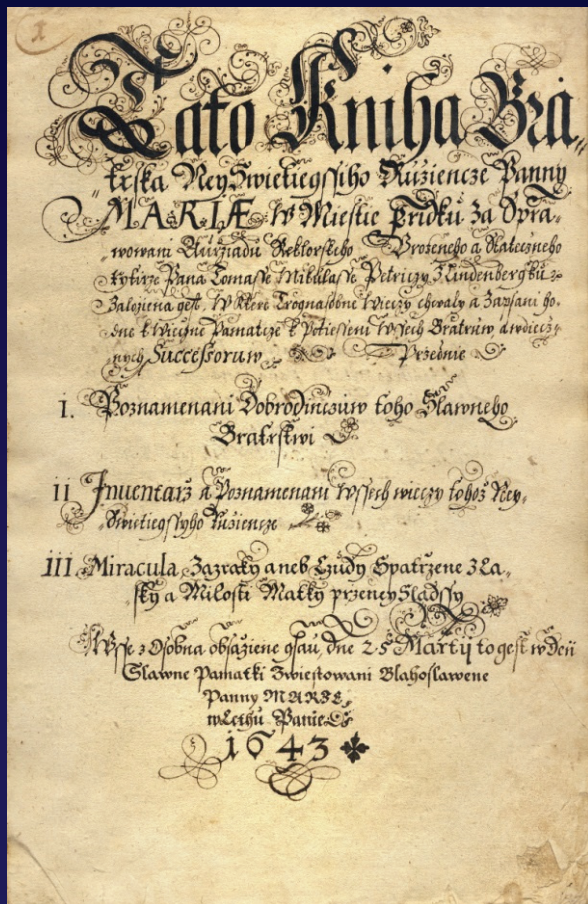 1
Tato Kniha Bra„
„trska Ney Swietiegssiho Ruziencze Panny
MARIÆ W Miestie Fridku Za Spra„
„wowani Auržiadu Rektorskeho Urozeneho a Stateczneho
Rytirže Pana Tomasse Mikulasse Petržiczy Z Lindenbergku
Založena gest. W ktere Trognasobne Wieczy chwaly a Zapsani ho„
„dne k Wieczne Pamatcze k Potiesseni Wssech Bratruw a wdiecz„
„nych Successoruw Przednie
I. Poznamenani Dobrodinczuw toho Slawneho
Bratrstwi
II Inuentarž a Poznamenani Wssech wieczy tohož Ney„
„Swietiegssyho Ružiencze
III. Miracula Zazraky aneb Czudy Spatržene Z La„
„sky a Milosti Matky przeney Sladssy
Wsse z Osobna obsaziene gsau, dne 25 Martij to gest w Deň
Slawne Pamatki Zwiestowani Blahoslawene
Panny MARIE,
w Lethu Panie
1643